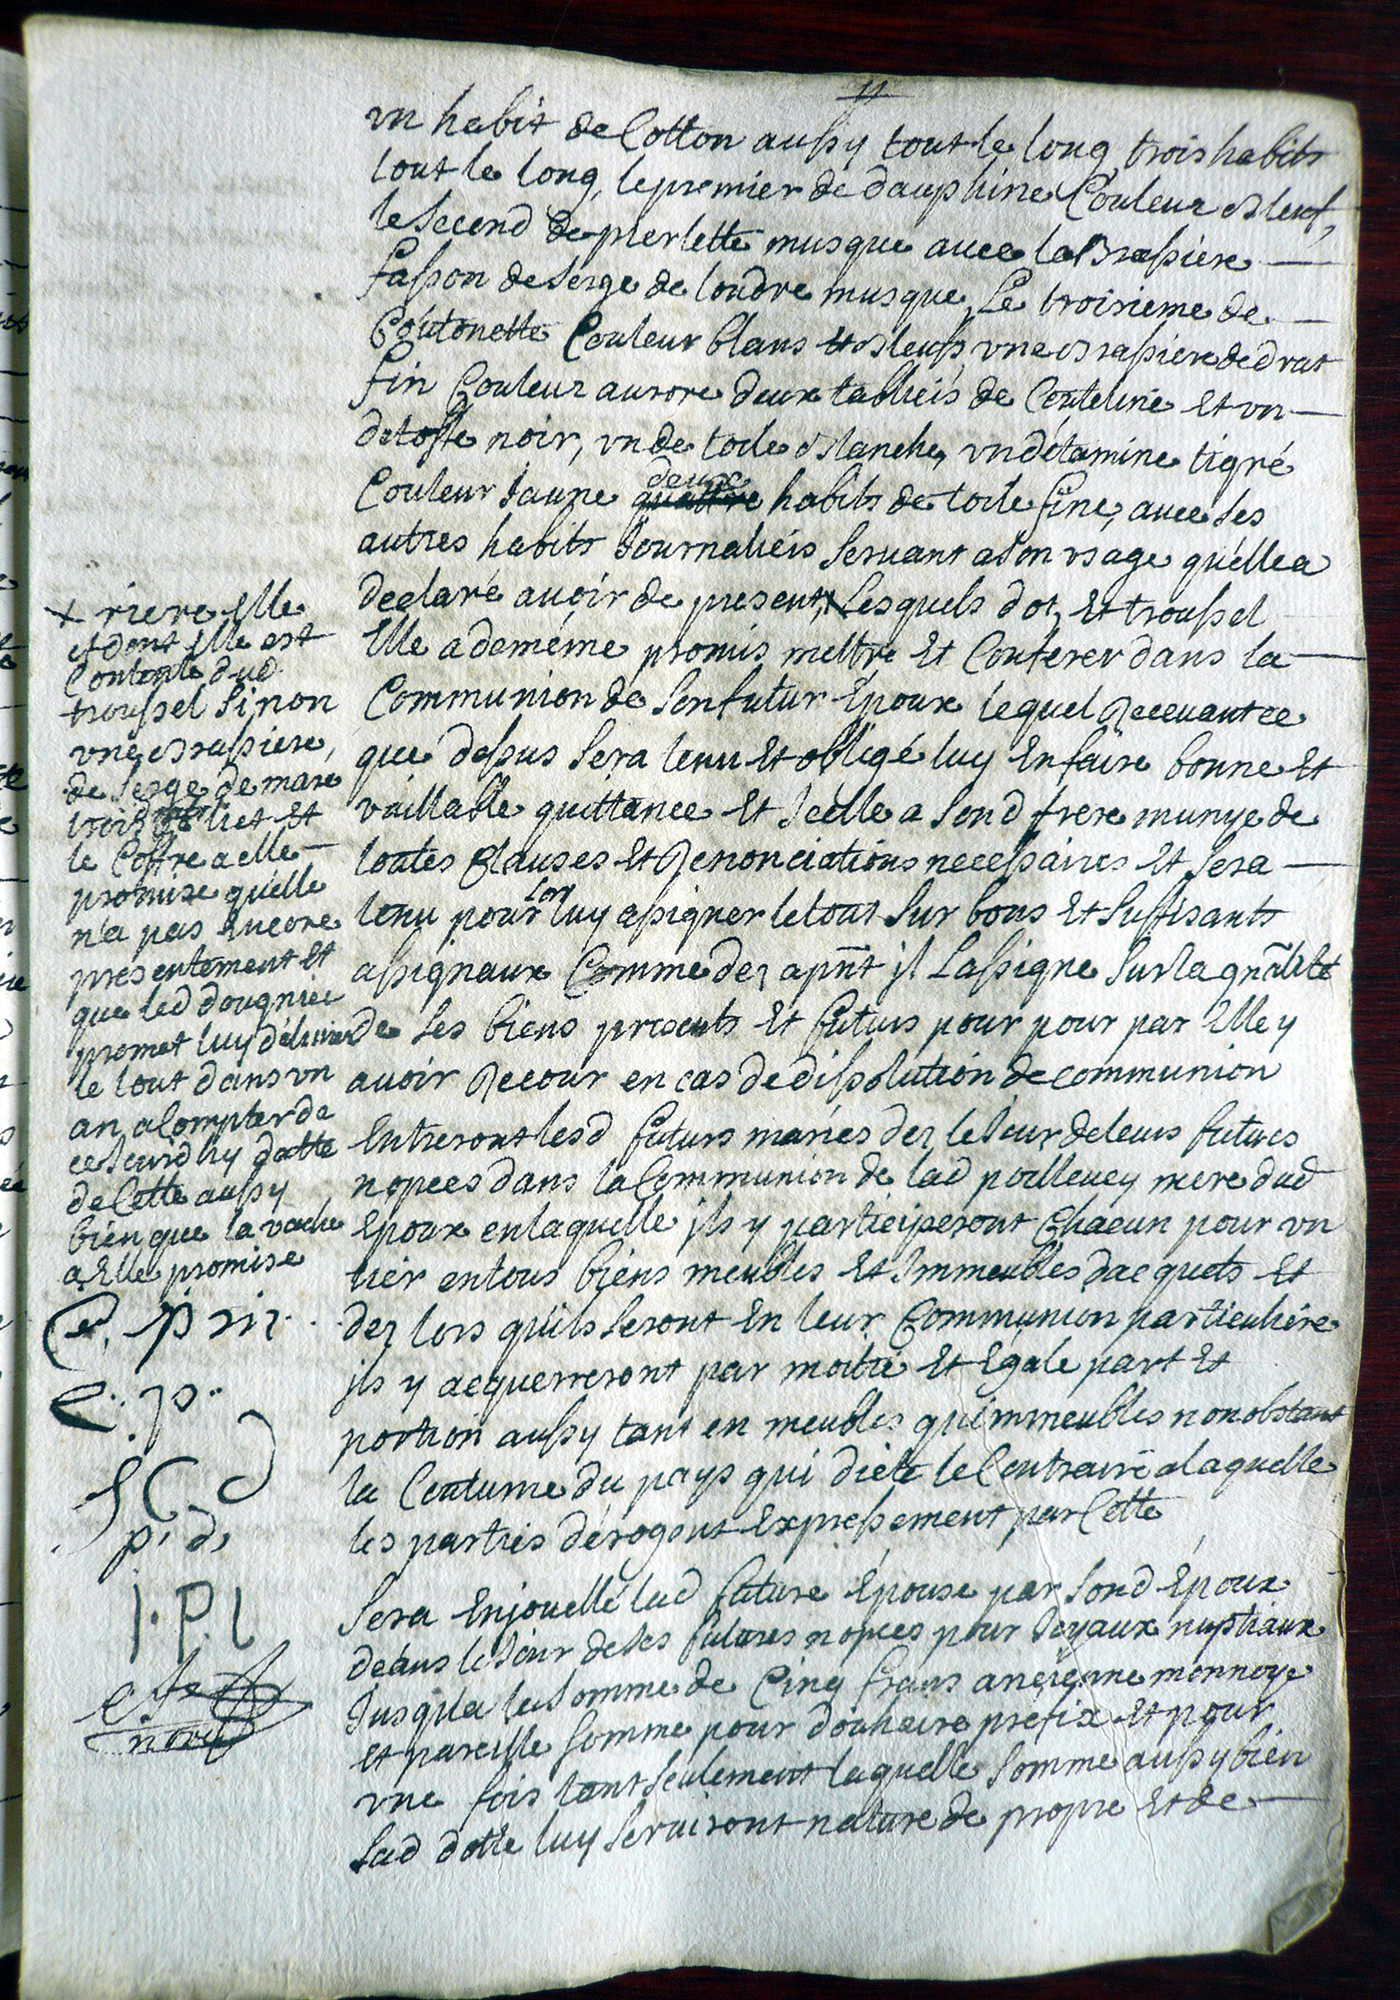 un habit de Cotton aussy tout le long, trois habits
tout le long, le premier de dauphine Couleur bleuf,
le second de pierlette musque avec la Brassiere
fasson de serge de londre musque, Le troisieme de
Coutonette Couleur blans et bleufs une brassiere de drat
fin Couleur aurore deux tablieis de Couteline et un
detoffe noir, un de toile blanche, un détamine tigré
Couleur Jaune quattre deux habits de toile fine, avec ses
autres habits Journalieis servant a son usage quelle a
declaré avoir de present, X Lesquels dot, et troussel
Elle a de méme promis mettre et Conferer dans la
Communion de son futur Epoux lequel Recevant ce
que dessus sera tenu et obligé luy en faire bonne et
vaillable quittance et Jcelle a sond frere munye de
toutes Clauses et Renonciations necessaires et sera
tenu pour lors luy assigner le tout sur bons et suffisants
assignaux Comme dez apnt jl Lassigne sur la gnãlité
de ses biens presents et futurs pour pour par Elle y
avoir Recour en cas de dissolution de communion
Entreront lesd futurs mariés dez le Jour de leurs futures
nopces dans la Communion de lad poilleuey mere dud
Epoux en laquelle jls y participeront Chacun pour un
tier en tous biens meubles et Immeubles dacquets et
dez lors quils seront en leur Communion particuliére
jls y acquerreront par moitié et Egale part et
portion aussy tant en meubles quimmeubles nonobstant
la Coutume du pays qui dicte le Contraire a laquelle
les parties dérogent Expressement par Cette
Sera Enjouellé lad future Epouse par sond Epoux
deans le Jour de ses futures nopces pour Joyaux nuptiaux
Jusqua la somme de Cinq frans ancienne monnoye
et pareille somme pour douhaire prefix et pour
une fois tant seulement laquelle somme aussy bien
sad dotte luy serviront nature de propre et de
X riere Elle
et dont Elle est
Contente dud
troussel sinon
une brassiere,
de serge de mare
trois liet et
le Coffre a elle
promise quelle
na pas encore
presentement et
que led dougnier
promet luy délivrer
le tout dans un
an a Compter de
ce Jourdhuy datte
de Cette aussy
bien que la vache
a Elle promise
e. p.
p. d.
J. P. l
nore